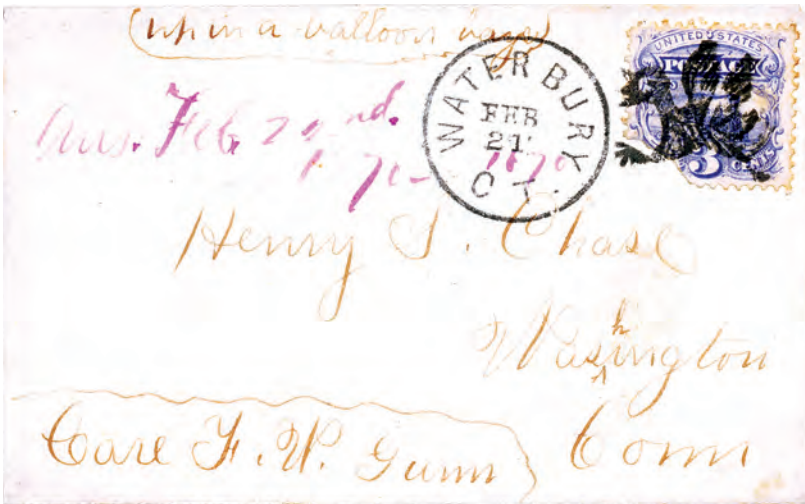 (up in a balloon boys)
Ans. Feb. 22nd.
1870
WATERBURY CT.
FEB
21
UNITED STATES
POSTAGE
3 CENTS
Henry S. Chase
Washington
Care F. W. Gunn
Conn